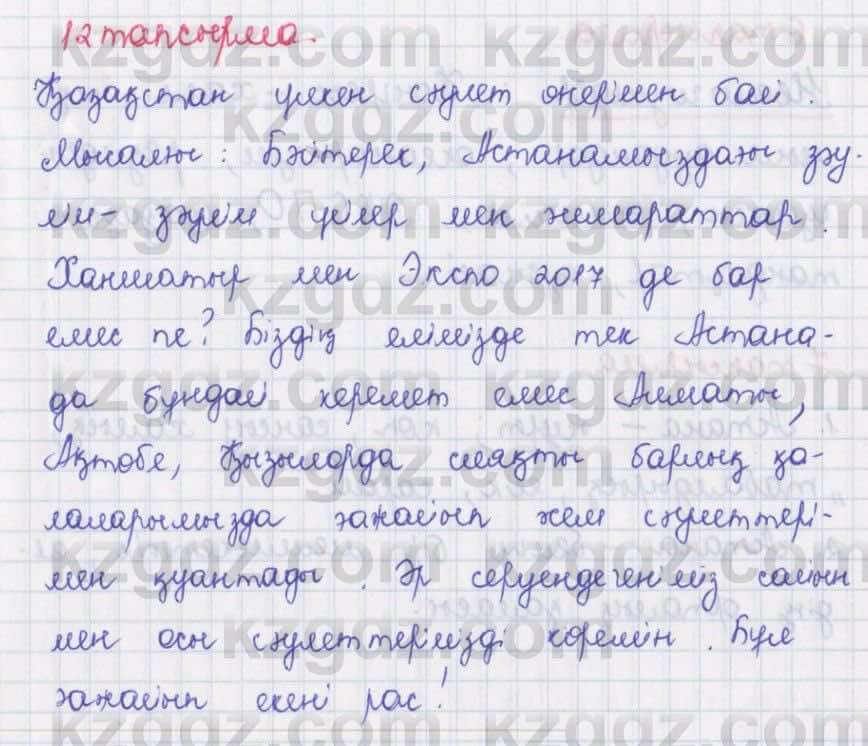 12 тапсырма.
Қазақстан үлкен сәулет өнермен бай.
Мысалы: Бәйтерек, Астанамыздағы зәу-
лім-зәулім үйлер мен ғимараттар.
Ханшатыр мен Экспо 2017 де бар
емес пе? Біздің елімізде тек Астана-
да бұндай керемет емес Алматы,
Ақтөбе, Қызылорда сияқты барлық қа-
лаларымызда ғажайып кем сәулеттері-
мен қуантады. Әр серуендегеніміз сайын
мен осы сәулеттерімізді көремін. Бұл
ғажайып екені рас!
kzgdz.com